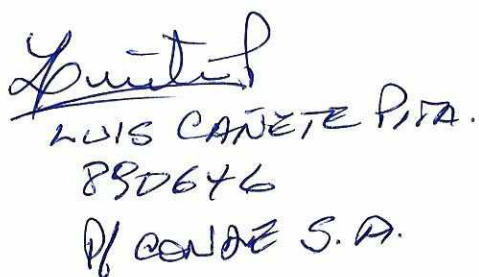 LUIS CAÑETE PITA.
890646
P/ CONDE S.A.